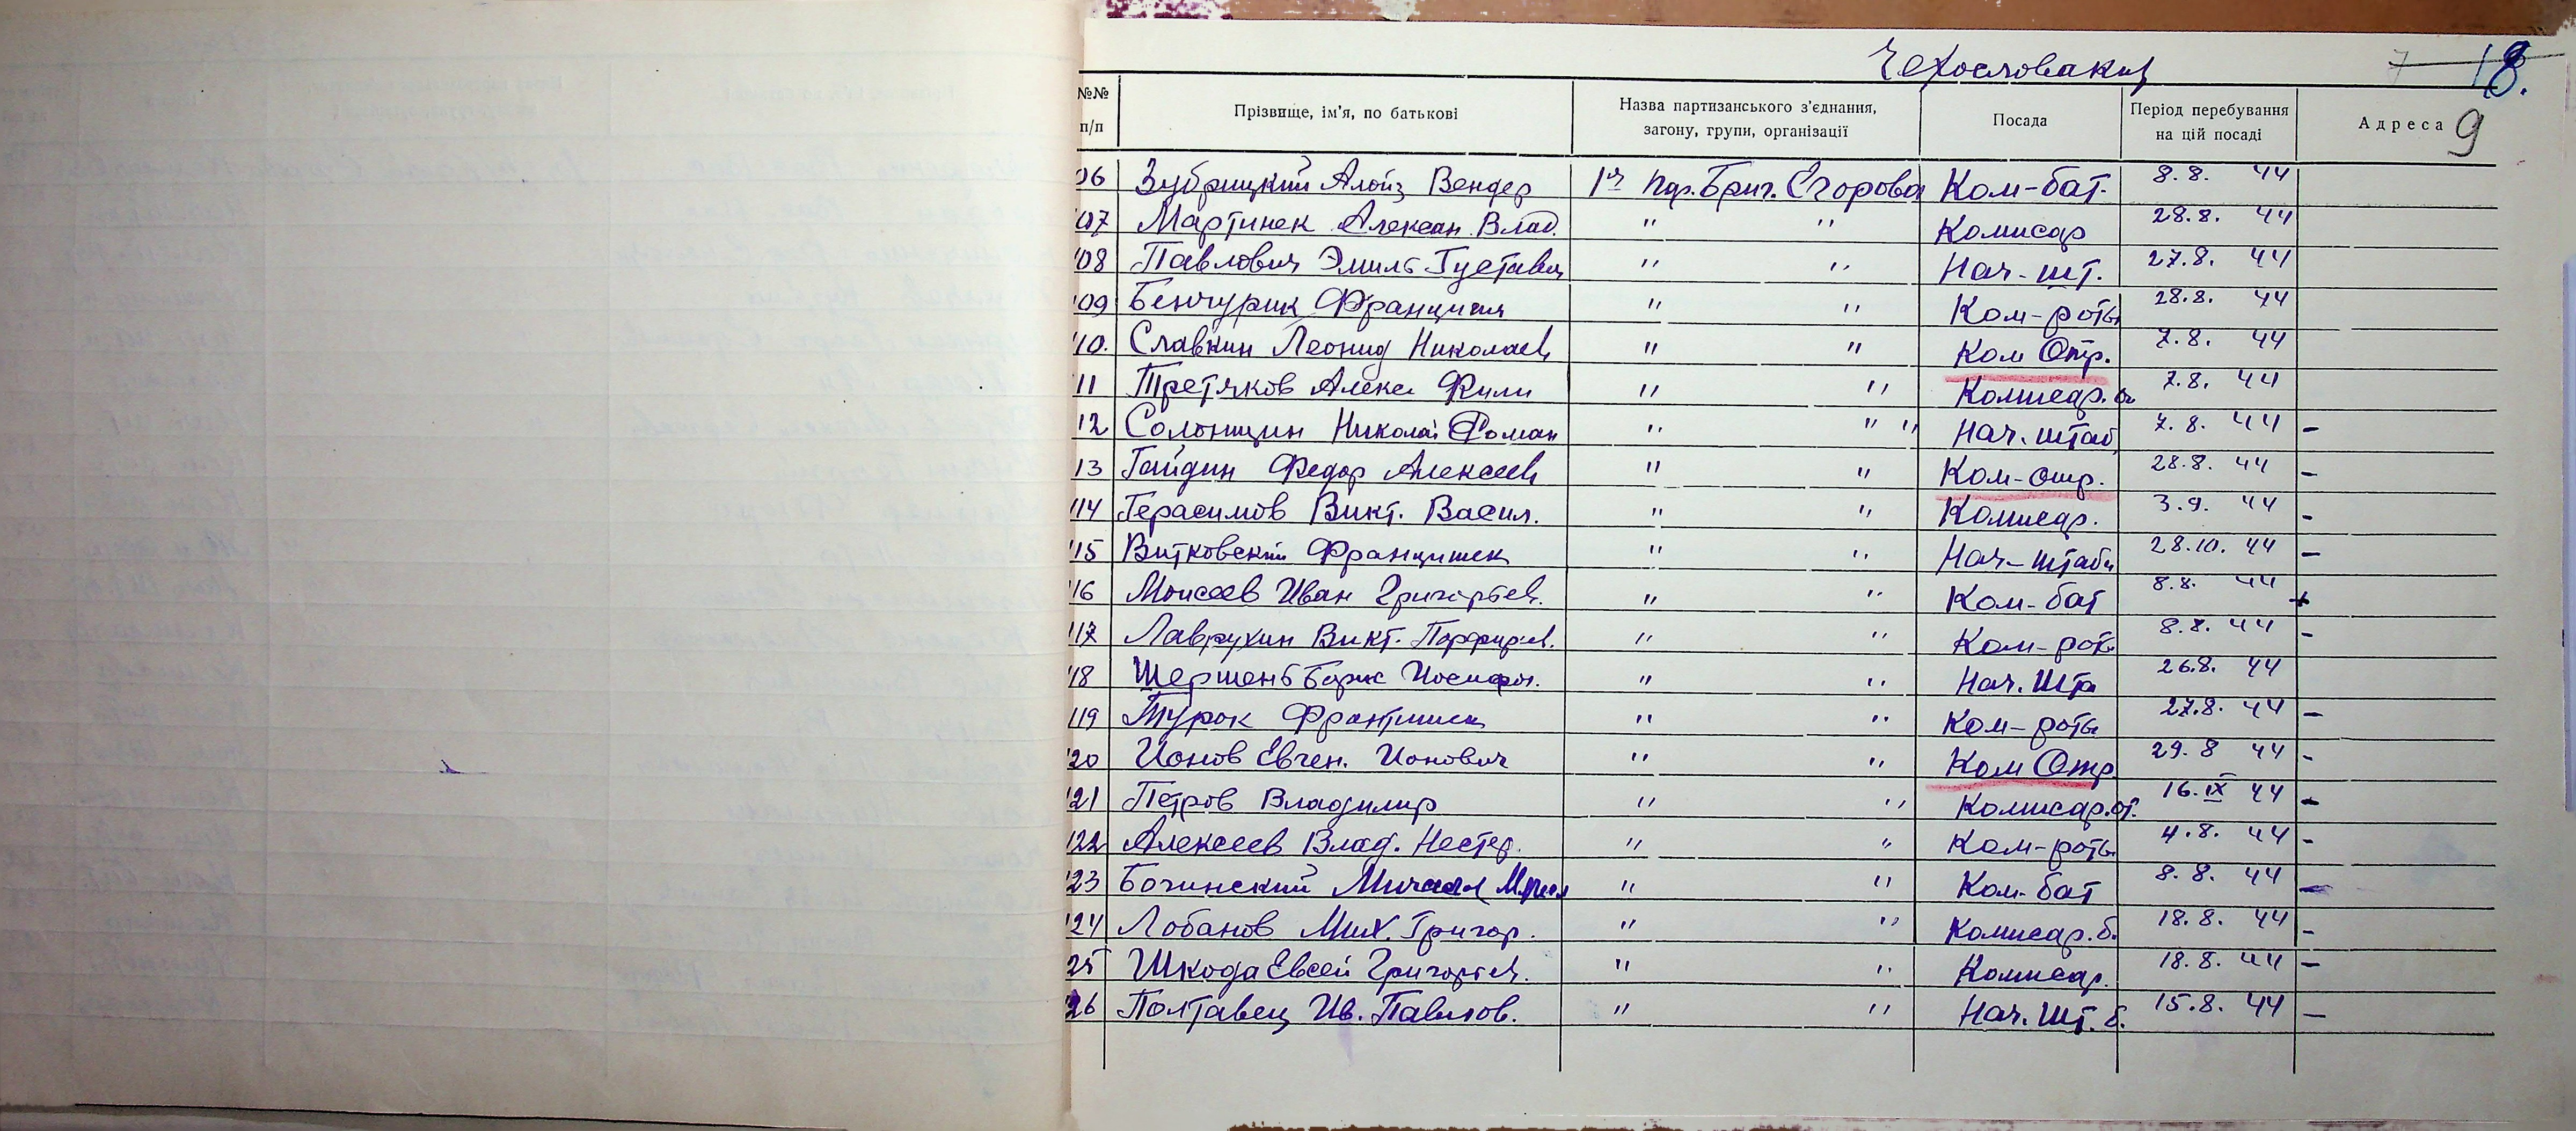 Чехословакия
7 18.
№№ п/п
Прізвище, ім'я, по батькові
Назва партизанського з'єднання, загону, групи, організації
Посада
Період перебування на цій посаді
Адреса 9
06 Зубрицкий Алойз Вендер 1я пар. Бриг. Егорова Ком-бат. 8.8. 44
107 Мартинек Алексан. Влад. " " Комисар 28.8. 44
108 Павлович Эмиль Густавич " " Нач-шт. 27.8. 44
109 Бенчурик Францишек " " Ком-роты 28.8. 44
110. Славкин Леонид Николаев " " Ком Отр. 7.8. 44
111 Третяков Алекс Фили " " Комисар. 7.8. 44
112 Солоницин Николай Роман " " " Нач. штаб 7.8. 44 -
113 Гайдин Федор Алексеев " " Ком-отр. 28.8. 44 -
114 Герасимов Викт. Васил. " " Комисар. 3.9. 44 -
115 Витковский Францишек " " Нач-штаба 28.10. 44 -
116 Моисеев Иван Григорьев. " " Ком-бат 8.8. 44 +
117 Лаврухин Викт. Порфирьев. " " Ком-рот 8.8. 44 -
118 Шершень Борис Иосифов. " " Нач. Шта 26.8. 44
119 Турок Францишек " " Ком-роты 27.8. 44 -
120 Ионов Евген. Ионович " " Ком Отр 29.8 44 -
121 Петров Владимир " " Комисар.от. 16.IX 44 -
122 Алексеев Влад. Нестер. " " Ком-роты 4.8. 44 -
123 Богинский " " Ком-бат 8.8. 44 -
124 Лобанов Мих. Григор. " " Комисар.б. 18.8. 44 -
25 Шкода Евсей Григорьев. " " Комисар. 18.8. 44 -
126 Полтавец Ив. Павлов. " " Нач. Шт. б. 15.8. 44 -